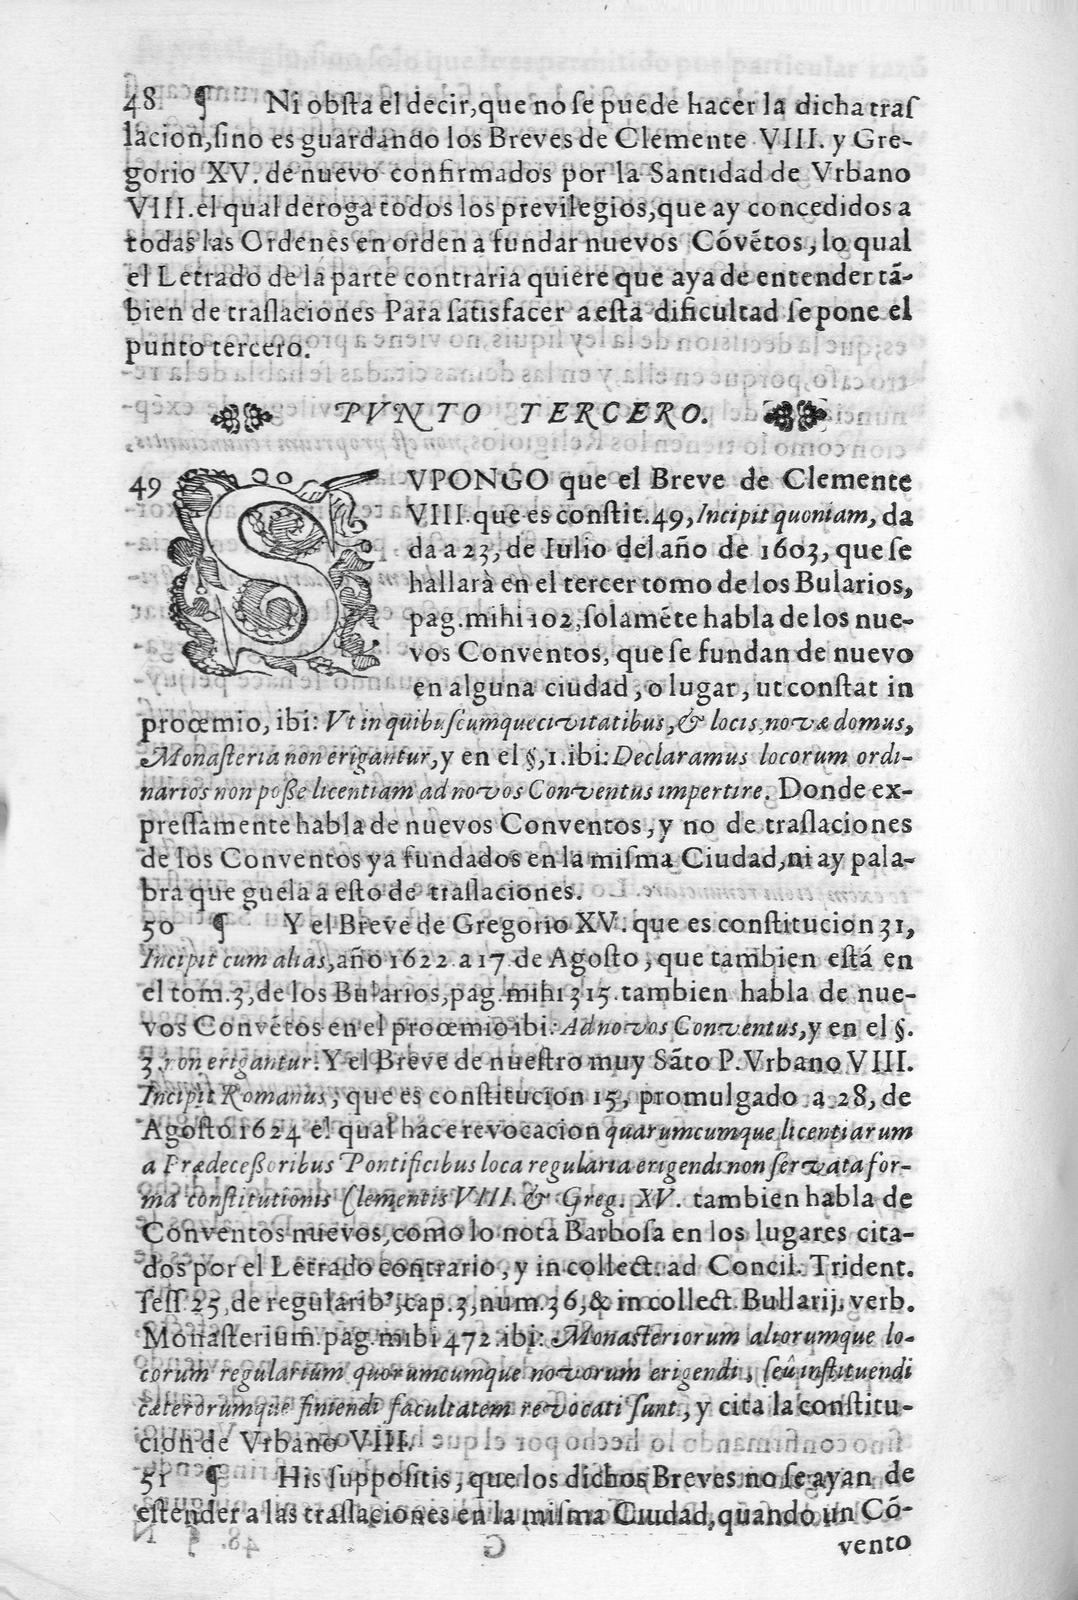 48 ¶ Ni obsta el decir, que no se puede hacer la dicha tras
lacion, sino es guardando los Breves de Clemente VIII. y Gre-
gorio XV. de nuevo confirmados por la Santidad de Vrbano
VIII. el qual deroga todos los previlegios, que ay concedidos a
todas las Ordenes en orden a fundar nuevos Cóvẽtos, lo qual
el Letrado de la parte contraria quiere que aya de entender tã-
bien de traslaciones Para satisfacer a esta dificultad se pone el
punto tercero.
PVNTO TERCERO.
49 SVPONGO que el Breve de Clemente
VIII. que es constit. 49, Incipit quoniam, da
da a 23, de Iulio del año de 1603, que se
hallarà en el tercer tomo de los Bularios,
pag. mihi 102, solamẽte habla de los nue-
vos Conventos, que se fundan de nuevo
en alguna ciudad, o lugar, ut constat in
proœmio, ibi: Vt in quibuscumque civitatibus, & locis, novæ domus,
Monasteria non erigantur, y en el §, 1. ibi: Declaramus locorum ordi-
narios non posse licentiam ad novos Conventus impertire. Donde ex-
pressamente habla de nuevos Conventos, y no de traslaciones
de los Conventos ya fundados en la misma Ciudad, ni ay pala-
bra que guela a esto de traslaciones.
50 ¶ Y el Breve de Gregorio XV. que es constitucion 31,
Incipit cum alias, año 1622 a 17 de Agosto, que tambien está en
el tom. 3, de los Bularios, pag. mihi 315. tambien habla de nue-
vos Convẽtos en el proœmio ibi: Ad novos Conventus, y en el §.
3. non erigantur. Y el Breve de nuestro muy Sãto P. Vrbano VIII.
Incipit Romanus, que es constitucion 15, promulgado a 28, de
Agosto 1624 el qual hace revocacion quarumcumque licentiarum
a Prædecessoribus Pontificibus loca regularia erigendi non servata for-
ma constitutionis Clementis VIII. & Greg. XV. tambien habla de
Conventos nuevos, como lo nota Barbosa en los lugares cita-
dos por el Letrado contrario, y in collect. ad Concil. Trident.
sess. 25, de regularib', cap. 3, num. 36, & in collect. Bullarij, verb.
Monasterium. pag. mihi 472. ibi: Monasteriorum aliorumque lo-
corum regularium quorumcumque novorum erigendi, seu instituendi
cæterorumque finiendi facultatem revocati sunt, y cita la constitu-
cion de Vrbano VIII.
51 ¶ His suppositis, que los dichos Breves no se ayan de
estender a las traslaciones en la misma Ciudad, quando un Cō-
vento